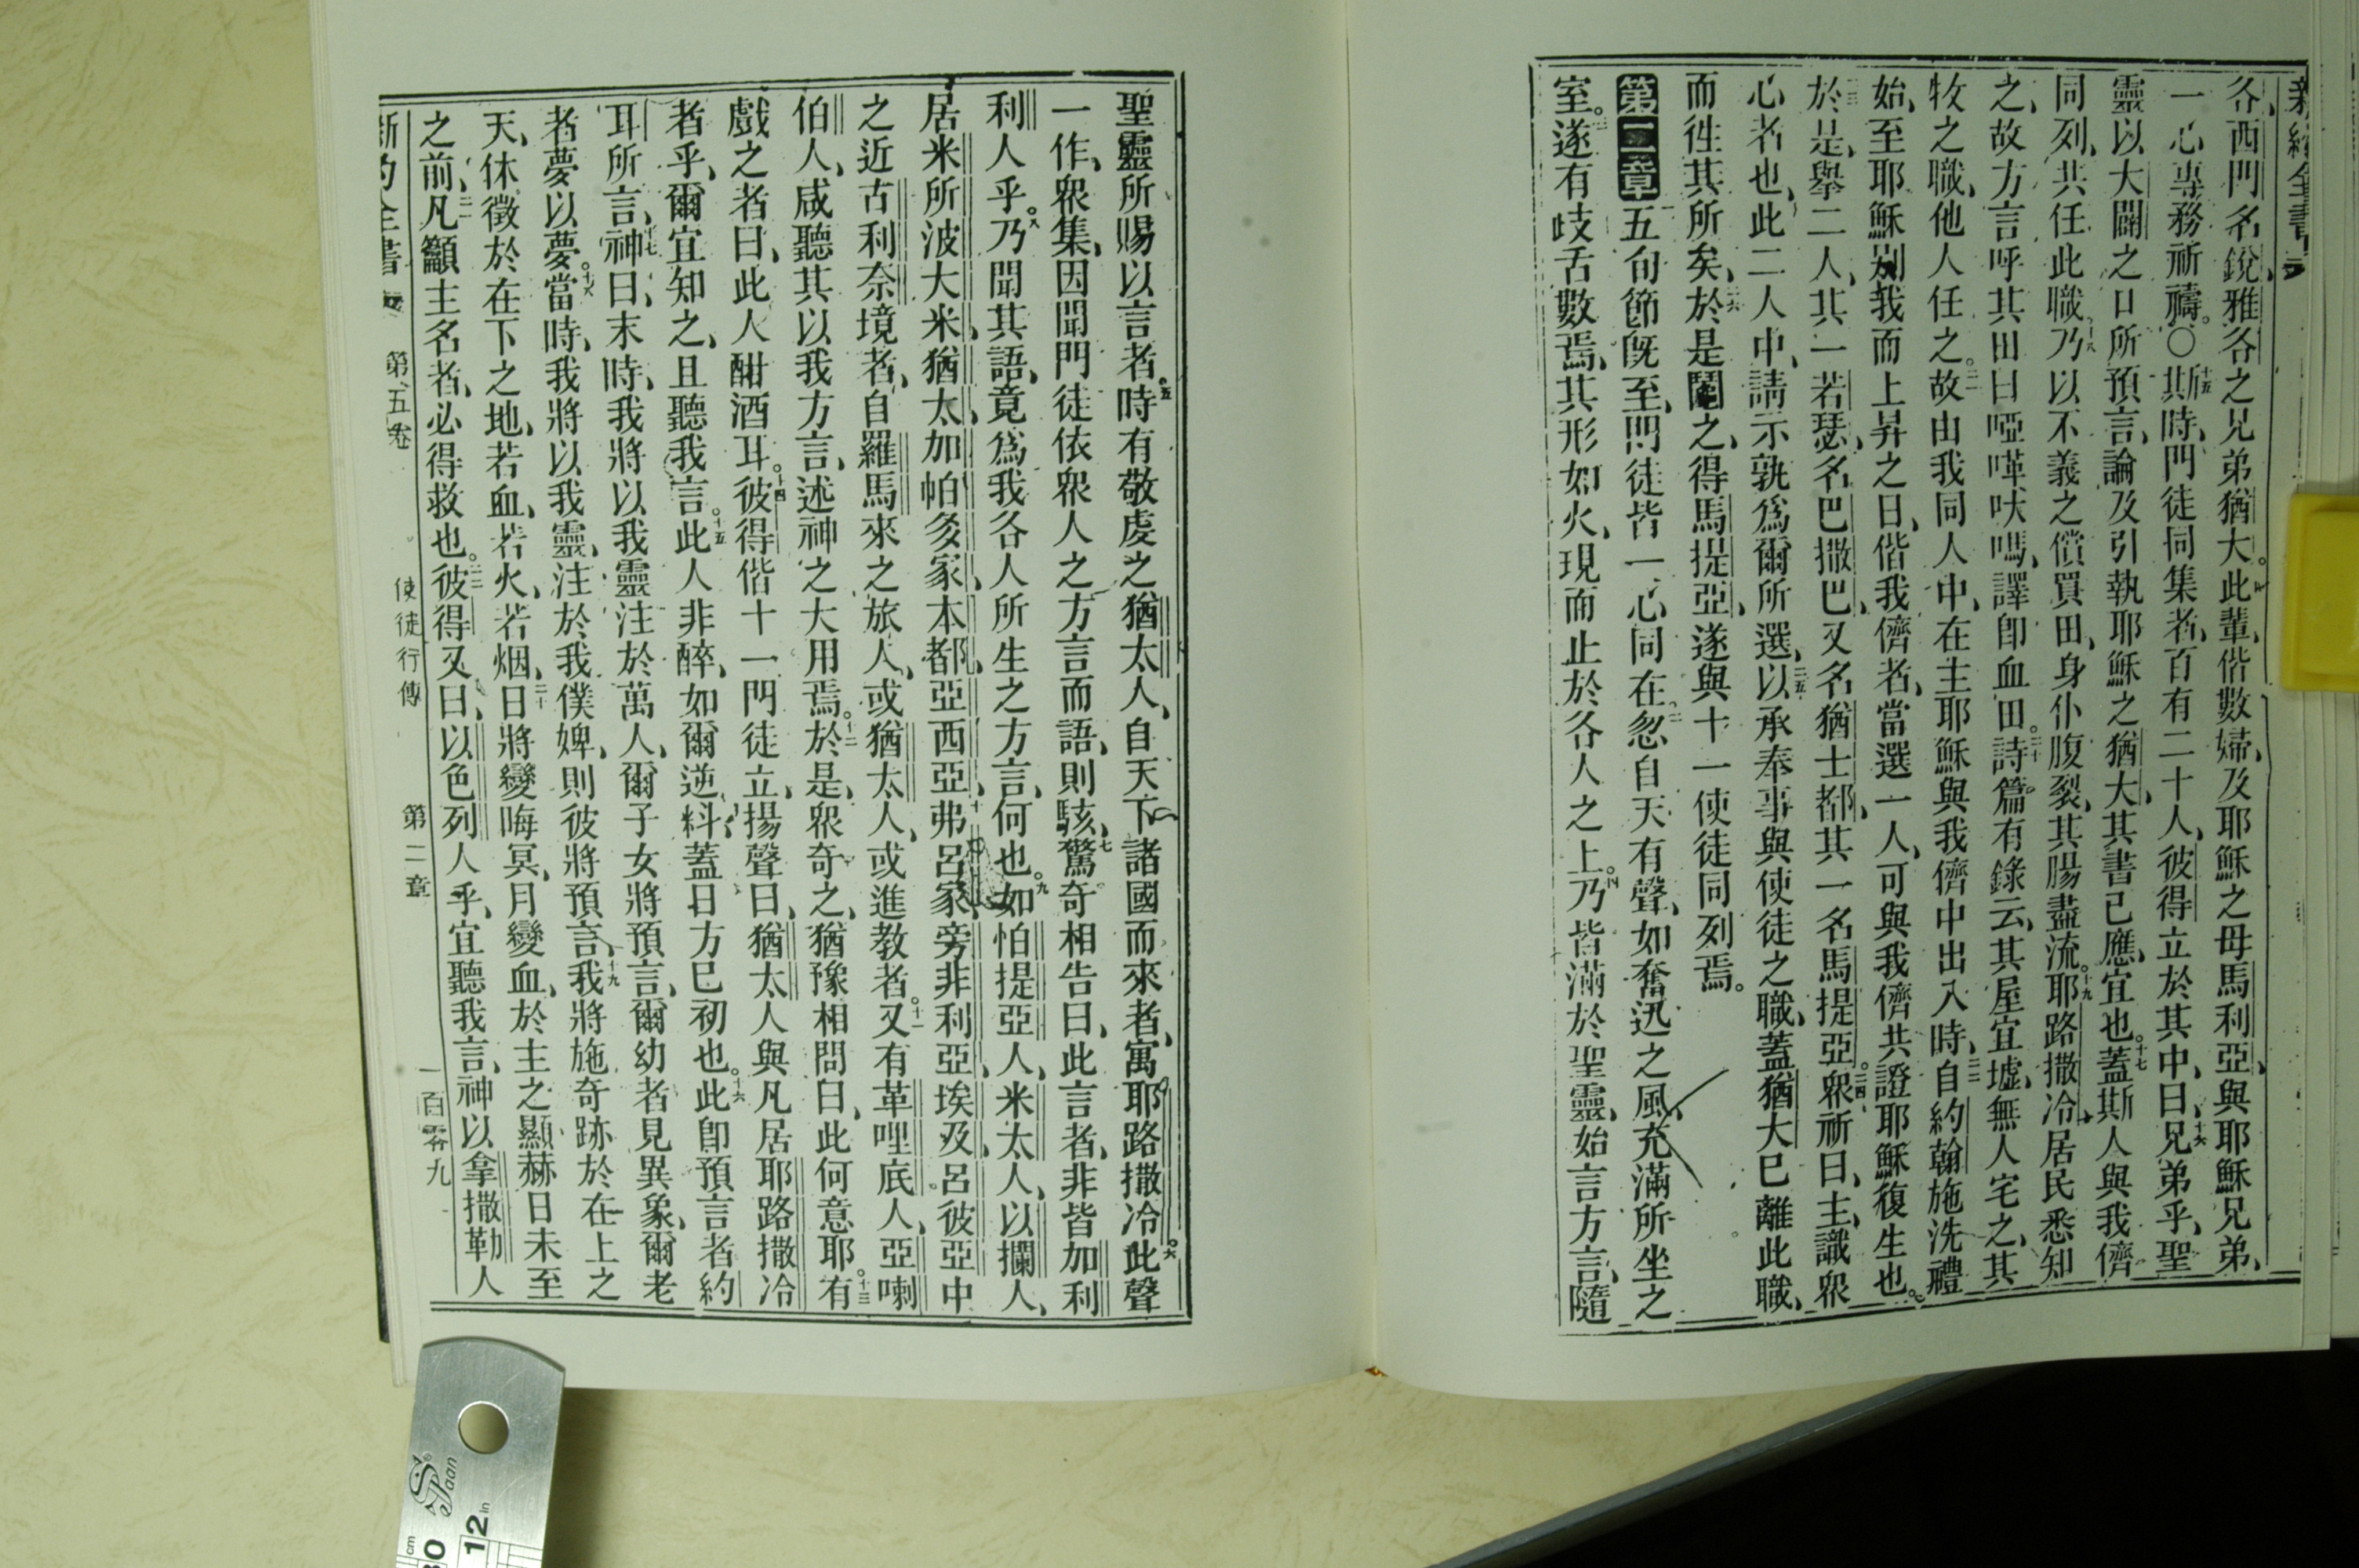 新約全書
各、西門名銳、雅各之兄弟猶大。此輩、偕數婦、及耶穌之母馬利亞、與耶穌兄弟、
一心專務祈禱。○十五斯時、門徒同集者、百有二十人、彼得立於其中、曰、十六兄弟乎、聖
靈以大闢之口所預言、論及引執耶穌之猶大、其書已應、宜也。十七蓋斯人與我儕
同列、共任此職、十八乃以不義之償買田、身仆腹裂、其腸盡流。十九耶路撒冷居民悉知
之、故方言呼其田曰啞嘩呔嗎、譯卽血田。二十詩篇有錄云、其屋宜墟、無人宅之、其
牧之職、他人任之。二一故由我同人中、在主耶穌與我儕中出入時、二二自約翰施洗禮
始、至耶穌別我而上昇之日、偕我儕者、當選一人、可與我儕共證耶穌復生也。
二三於是、舉二人、其一若瑟、名巴撒巴、又名猶士都、其一名馬提亞。二四衆祈曰、主、識衆
心者也、此二人中、請示孰爲爾所選、二五以承奉事與使徒之職、蓋猶大已離此職、
而往其所矣、二六於是鬮之、得馬提亞、遂與十一使徒同列焉。
第二章 五旬節旣至、門徒皆一心同在。二忽自天有聲、如奮迅之風、充滿所坐之
室。三遂有歧舌數焉、其形如火、現而止於各人之上。四乃皆滿於聖靈、始言方言、隨
聖靈所賜以言者。五時有敬虔之猶太人、自天下諸國而來者、寓耶路撒冷。六此聲
一作、衆集、因聞門徒依衆人之方言而語、則駭、七驚奇相告曰、此言者、非皆加利
利人乎。八乃聞其語、竟爲我各人所生之方言、何也。九如帕提亞人、米太人、以攔人、
居米所波大米、猶太、加帕多家、本都、亞西亞、十弗呂家、旁非利亞、埃及、呂彼亞中
之近古利奈境者、自羅馬來之旅人、或猶太人、或進教者。十一又有革哩底人、亞喇
伯人、咸聽其以我方言、述神之大用焉。十二於是、衆奇之、猶豫相問曰、此何意耶。十三有
戲之者曰、此人酣酒耳。十四彼得偕十一門徒立、揚聲曰、猶太人與凡居耶路撒冷
者乎、爾宜知之、且聽我言。十五此人非醉、如爾逆料、蓋日方巳初也。十六此卽預言者約
耳所言、十七神曰、末時、我將以我靈注於萬人、爾子女將預言、爾幼者見異象、爾老
者夢以夢。十八當時、我將以我靈、注於我僕婢、則彼將預言、十九我將施奇跡於在上之
天、休徵於在下之地、若血、若火、若烟、二十日將變晦冥、月變血、於主之顯赫日未至
之前、二一凡籲主名者、必得救也。二二彼得又曰、以色列人乎、宜聽我言、神以拿撒勒人
新約全書 第五卷 使徒行傳 第二章 一百零九
cm 30
12 in